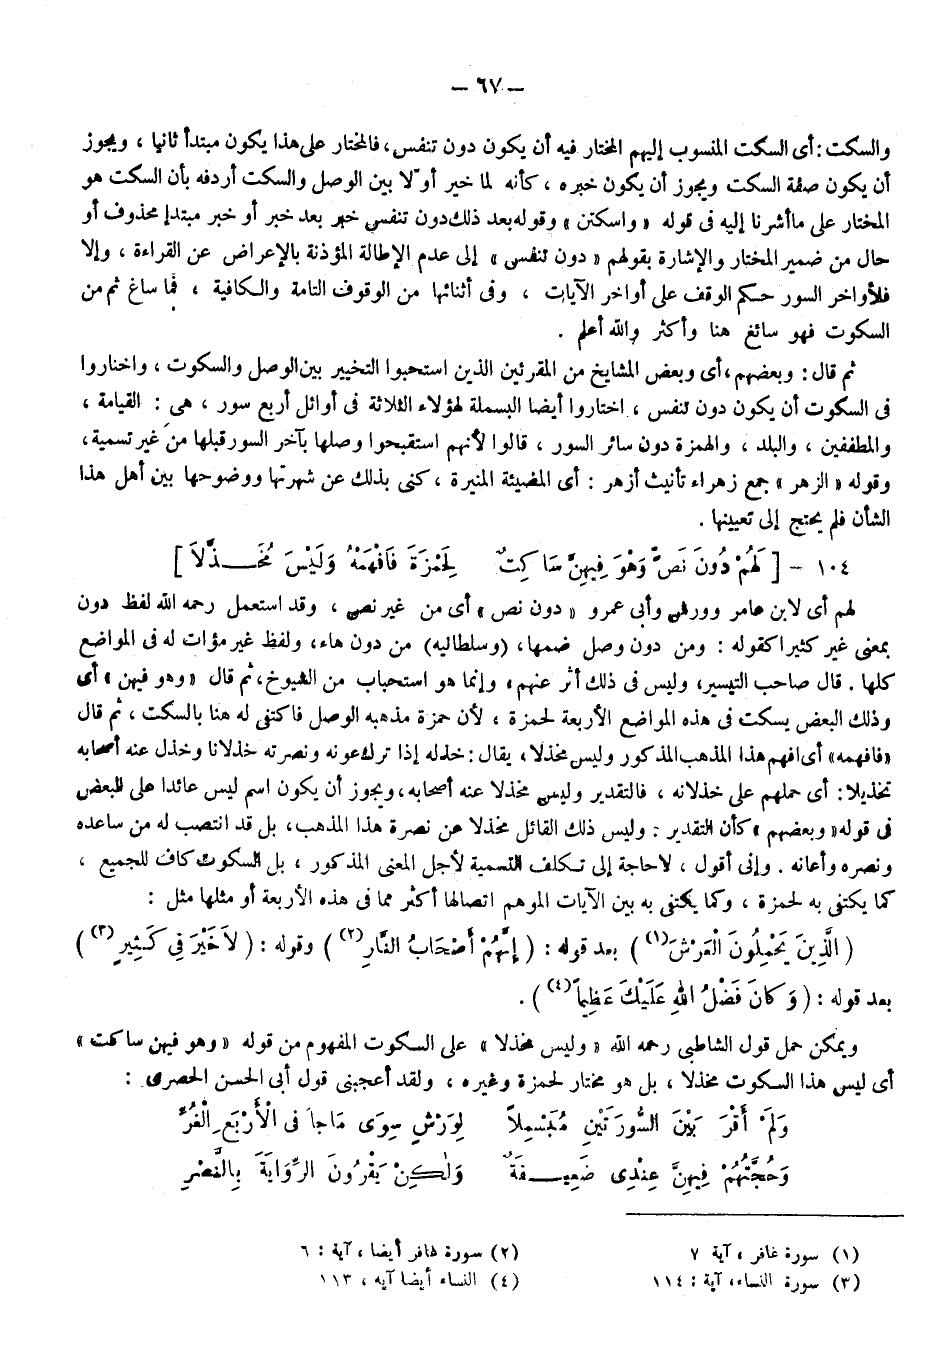 – ٦٧ –
والسكت : أى السكت المنسوب إليهم المختار فيه أن يكون دون تنفس ، فالمختار على هذا يكون مبتدأ ثانيا ، ويجوز
أن يكون صفة السكت ويجوز أن يكون خبره ، كأنه لما خير أولا بين الوصل والسكت أردفه بأن السكت هو
المختار على ماأشرنا إليه فى قوله « واسكتن » وقوله بعد ذلك دون تنفس خبر بعد خبر أو خبر مبتدإ محذوف أو
حال من ضمير المختار والإشارة بقولهم « دون تنفس » إلى عدم الإطالة المؤذنة بالإعراض عن القراءة ، وإلا
فلأواخر السور حكم الوقف على أواخر الآيات ، وفى أثنائها من الوقوف التامة والكافية ، فما ساغ ثم من
السكوت فهو سائغ هنا وأكثر والله أعلم .
ثم قال : وبعضهم ، أى وبعض المشايخ من المقرئين الذين استحبوا التخيير بين الوصل والسكوت ، واختاروا
فى السكوت أن يكون دون تنفس ، اختاروا أيضا البسملة لهؤلاء الثلاثة فى أوائل أربع سور ، هى : القيامة ،
والمطففين ، والبلد ، والهمزة دون سائر السور ، قالوا لأنهم استقبحوا وصلها بآخر السور قبلها من غير تسمية ،
وقوله « الزهر » جمع زهراء تأنيث أزهر : أى المضيئة المنيرة ، كنى بذلك عن شهرتها ووضوحها بين أهل هذا
الشأن فلم يحتج إلى تعيينها .
١٠٤ – [ لَهُمْ دُونَ نَصٍّ وَهْوَ فِيهِنَّ سَاكِتٌ لِحَمْزَةَ فَافْهَمْهُ وَلَيْسَ مُخَـــذَّلَا ]
لهم أى لابن عامر وورش وأبى عمرو « دون نص » أى من غير نص ، وقد استعمل رحمه الله لفظ دون
بمعنى غير كثيرا كقوله : ومن دون وصل ضمها ، (وسلطانيه) من دون هاء ، ولفظ غير مؤات له فى المواضع
كلها . قال صاحب التيسير ، وليس فى ذلك أثر عنهم ، وإنما هو استحباب من الشيوخ ، ثم قال « وهو فيهن » أى
وذلك البعض يسكت فى هذه المواضع الأربعة لحمزة ، لأن حمزة مذهبه الوصل فاكتفى له هنا بالسكت ، ثم قال
«فافهمه» أى افهم هذا المذهب المذكور وليس مخذلا ، يقال : خذله إذا ترك عونه ونصرته خذلانا وخذل عنه أصحابه
تخذيلا : أى حملهم على خذلانه ، فالتقدير وليس مخذلا عنه أصحابه ، ويجوز أن يكون اسم ليس عائدا على البعض
فى قوله « وبعضهم » كأن التقدير : وليس ذلك القائل مخذلا عن نصرة هذا المذهب ، بل قد انتصب له من ساعده
ونصره وأعانه . وإنى أقول ، لاحاجة إلى تكلف التسمية لأجل المعنى المذكور ، بل السكوت كاف للجميع ،
كما يكتفى به لحمزة ، وكما يكتفى به بين الآيات الموهم اتصالها أكثر مما فى هذه الأربعة أو مثلها مثل :
( الَّذِينَ يَحْمِلُونَ الْعَرْشَ (١) ) بعد قوله : ( إِنَّهُمْ أَصْحَابُ النَّارِ (٢) ) وقوله : ( لَاخَيْرَ فِي كَثِيرٍ (٣) )
بعد قوله : ( وَكَانَ فَضْلُ اللهِ عَلَيْكَ عَظِيماً (٤) ) .
ويمكن حمل قول الشاطبى رحمه الله « وليس مخذلا » على السكوت المفهوم من قوله « وهو فيهن ساكت »
أى ليس هذا السكوت مخذلا ، بل هو مختار لحمزة وغيره ، ولقد أعجبنى قول أبى الحسن الحصرى :
وَلَمْ أَقْرَ بَيْنَ السُّورَتَيْنِ مُبَسْمِلاً لِوَرْشٍ سِوَى مَاجَا فى الْأَرْبَعِ الْغُرِّ
وَحُجَّتُهُمْ فِيهِنَّ عِنْدِى ضَعِيـفَةٌ وَلٰكِنْ يَقْرُونَ الرِّوَايَةَ بِالنَّصْرِ
(١) سورة غافر ، آية ٧
(٢) سورة غافر أيضا ، آية : ٦
(٣) سورة النساء ، آية : ١١٤
(٤) النساء أيضا آيه ، ١١٣